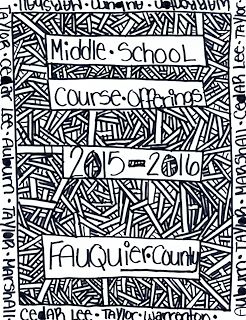 Middle • School
Course • Offerings
2015 - 2016
FAUQUier • County
Cedar Lee • Taylor • Warrenton •
Taylor Cedar Lee Auburn • Taylor • Marshall
Auburn • Taylor • Marshall Cedar Lee Taylor